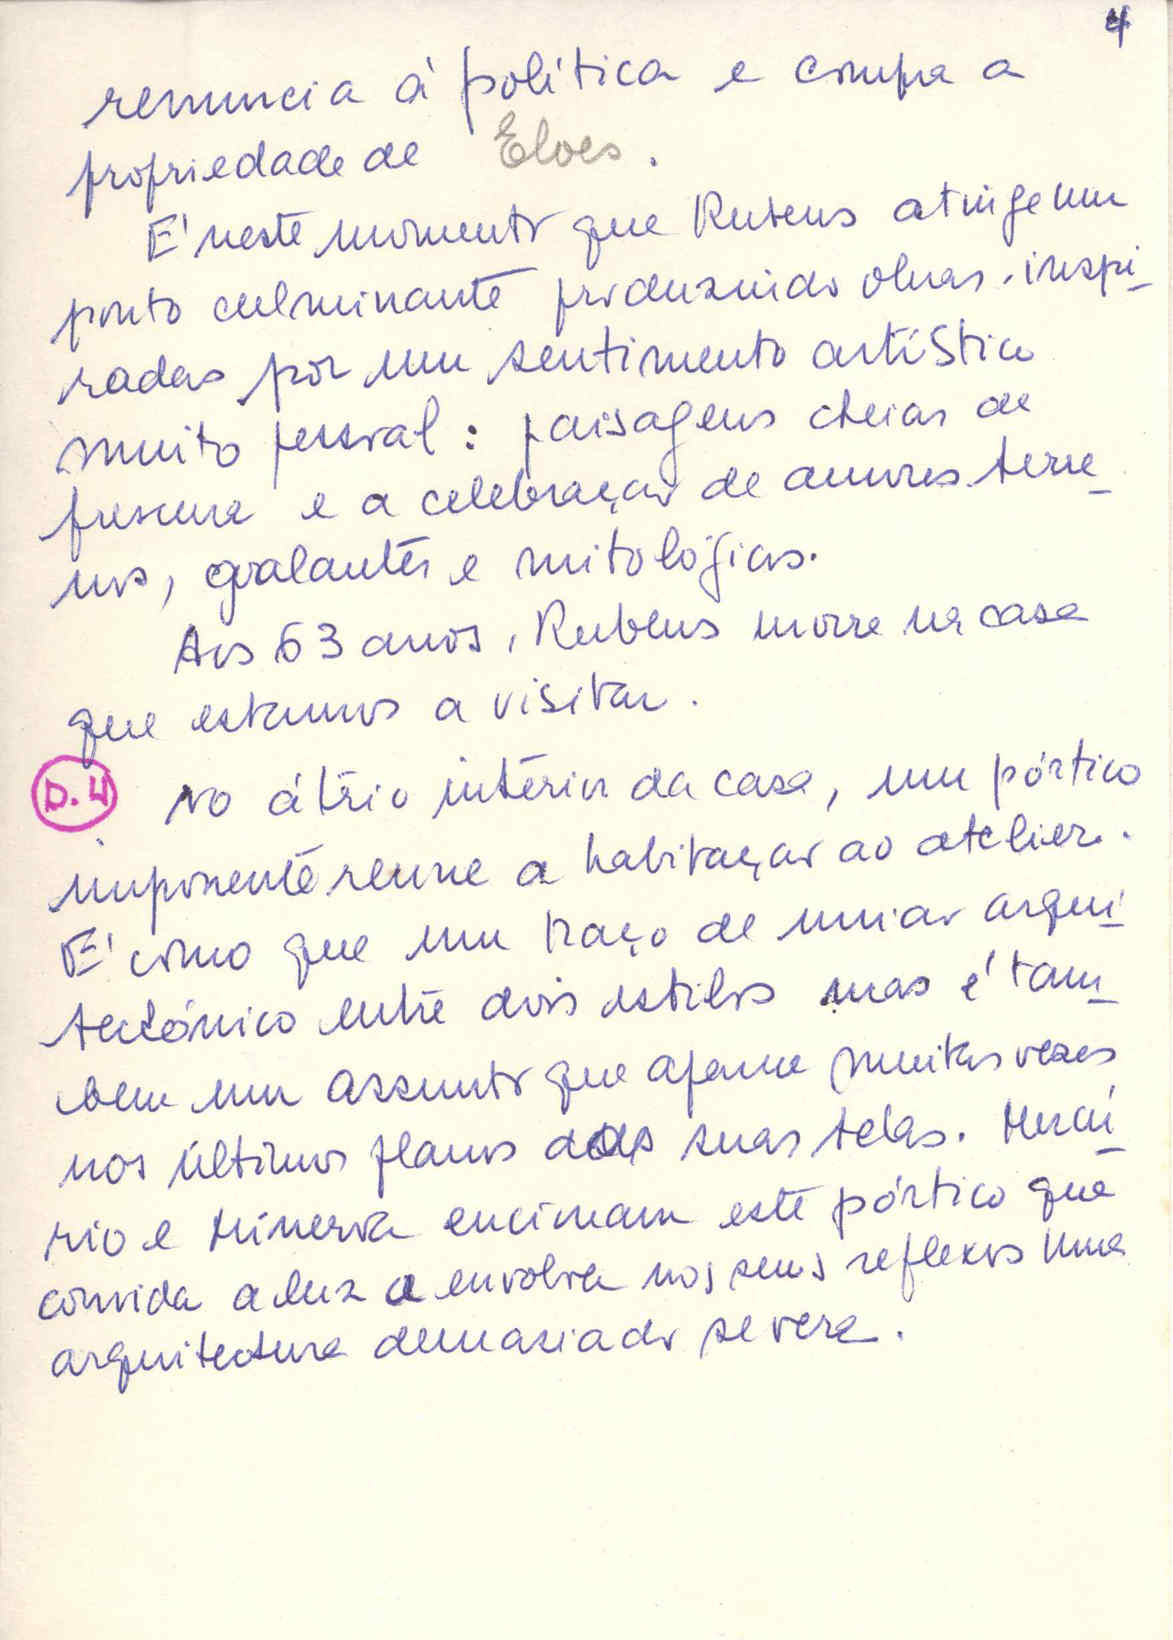 4
renuncia à política e compra a
propriedade de Eloes.
É neste momento que Rubens atinge um
ponto culminante produzindo obras inspi-
radas por um sentimento artístico
muito pessoal: paisagens cheias de
frescura e a celebração de amores terre-
nos, galantes e mitológicos.
Aos 63 anos, Rubens morre na casa
que estamos a visitar.
D.4 No átrio interior da casa, um pórtico
imponente reune a habitação ao atelier.
É como que um traço de união arqui-
tectónico entre dois estilos mas é tam-
bem um assunto que aparece muitas vezes
nos últimos planos das suas telas. Mercú-
rio e Minerva encimam este pórtico que
convida a luz a envolver nos seus reflexos uma
arquitectura demasiado severa.